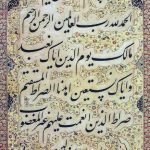 الحمد لله رب العالمين الرحمن الرحيم
مالك يوم الدين اياك نعبد
و اياك نستعين اهدنا الصراط المستقيم
صراط الذين انعمت عليهم غير المغضوب